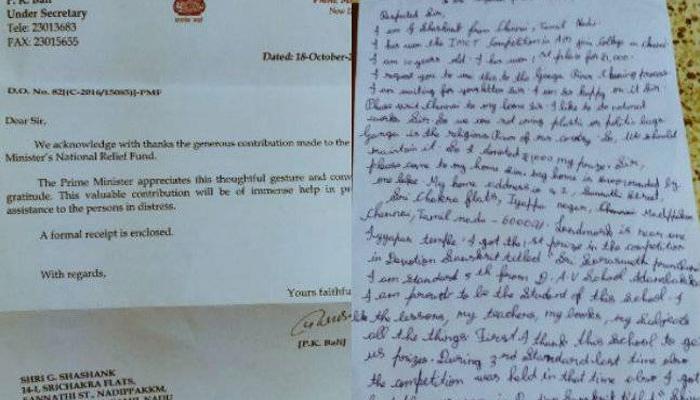 P. K. Bali
Under Secretary
Tele: 23013683
FAX: 23015655
Dated: 18-October-2
D.O. No. 82[(C-2016/15085)]-PMF
Dear Sir,
We acknowledge with thanks the generous contribution made to the
Minister's National Relief Fund.
The Prime Minister appreciates this thoughtful gesture and conv
gratitude. This valuable contribution will be of immense help in pr
assistance to the persons in distress.
A formal receipt is enclosed.
With regards,
Yours faithfu
[P.K. Bali]
SHRI G. SHASHANK
14-1, SRICHAKRA FLATS,
SANNATHI ST., NADIPPAKKM,
TAMIL NADU
Respected Sir,
I am G Shashank from Chennai, Tamil Nadu.
I has won the Competition in Jain College in chennai
I am 10 years old. I has won 1st place for
I request you to use this to the Ganga River Cleaning process
I am waiting for your letter sir. I am so happy on it Sir.
Please visit Chennai to my home Sir. I like to do natural
works Sir. So we are not using plastic or bags
Ganga is the religious River of our country. So, We should
maintain it. So I donated my prize. Sir,
please come to my home Sir. My home is surrounded by
one lake. My home address is Sannathi Street,
Sri Chakra flats, Iyyappa nagar, Chennai
Chennai, Tamil nadu - 600091. Landmark is near one
Iyyappa temple. I got the 1st prize in the competition
in Devotion Sanskrit titled "Sri
I am Standard 5th from D.A.V School Adambakkam
I am proud to be the Student of this school. I
like the lessons, my teachers, my books, my subjects
all the things. First I thank this School to
us prizes. During 3rd Standard last time also
the competition was held in that time also I got